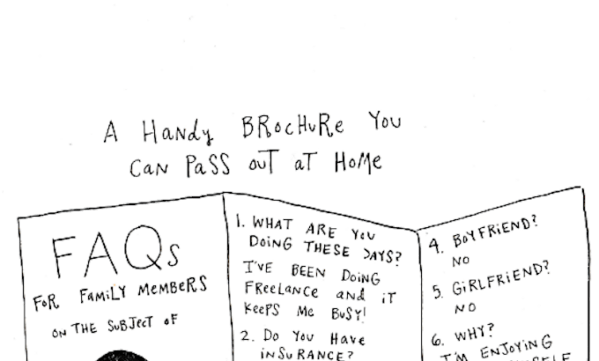 A HANDY BROCHURE YOU
CAN PASS OUT AT HOME
FAQs
FOR FAMILY MEMBERS
ON THE SUBJECT OF
1. WHAT ARE YOU
DOING THESE DAYS?
I'VE BEEN DOING
FREELANCE AND IT
KEEPS ME BUSY!
2. DO YOU HAVE
INSURANCE?
4. BOYFRIEND?
NO
5. GIRLFRIEND?
NO
6. WHY?
I'M ENJOYING